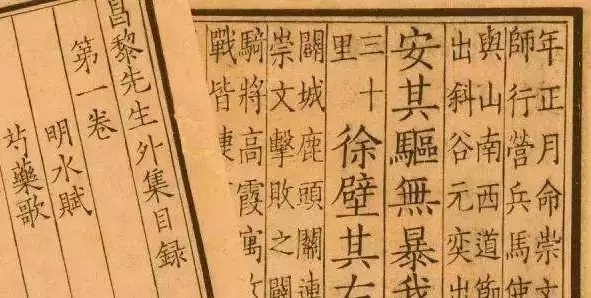 年正月命崇文
師行營兵馬使
與山南西道節
出斜谷元奕出
安其驅無暴我
三十
里
徐壁其右
闢城鹿頭關連
崇文擊敗之闢
騎將高霞寓攻
戰皆
昌黎先生外集目録
第一卷
明水賦
芍藥歌